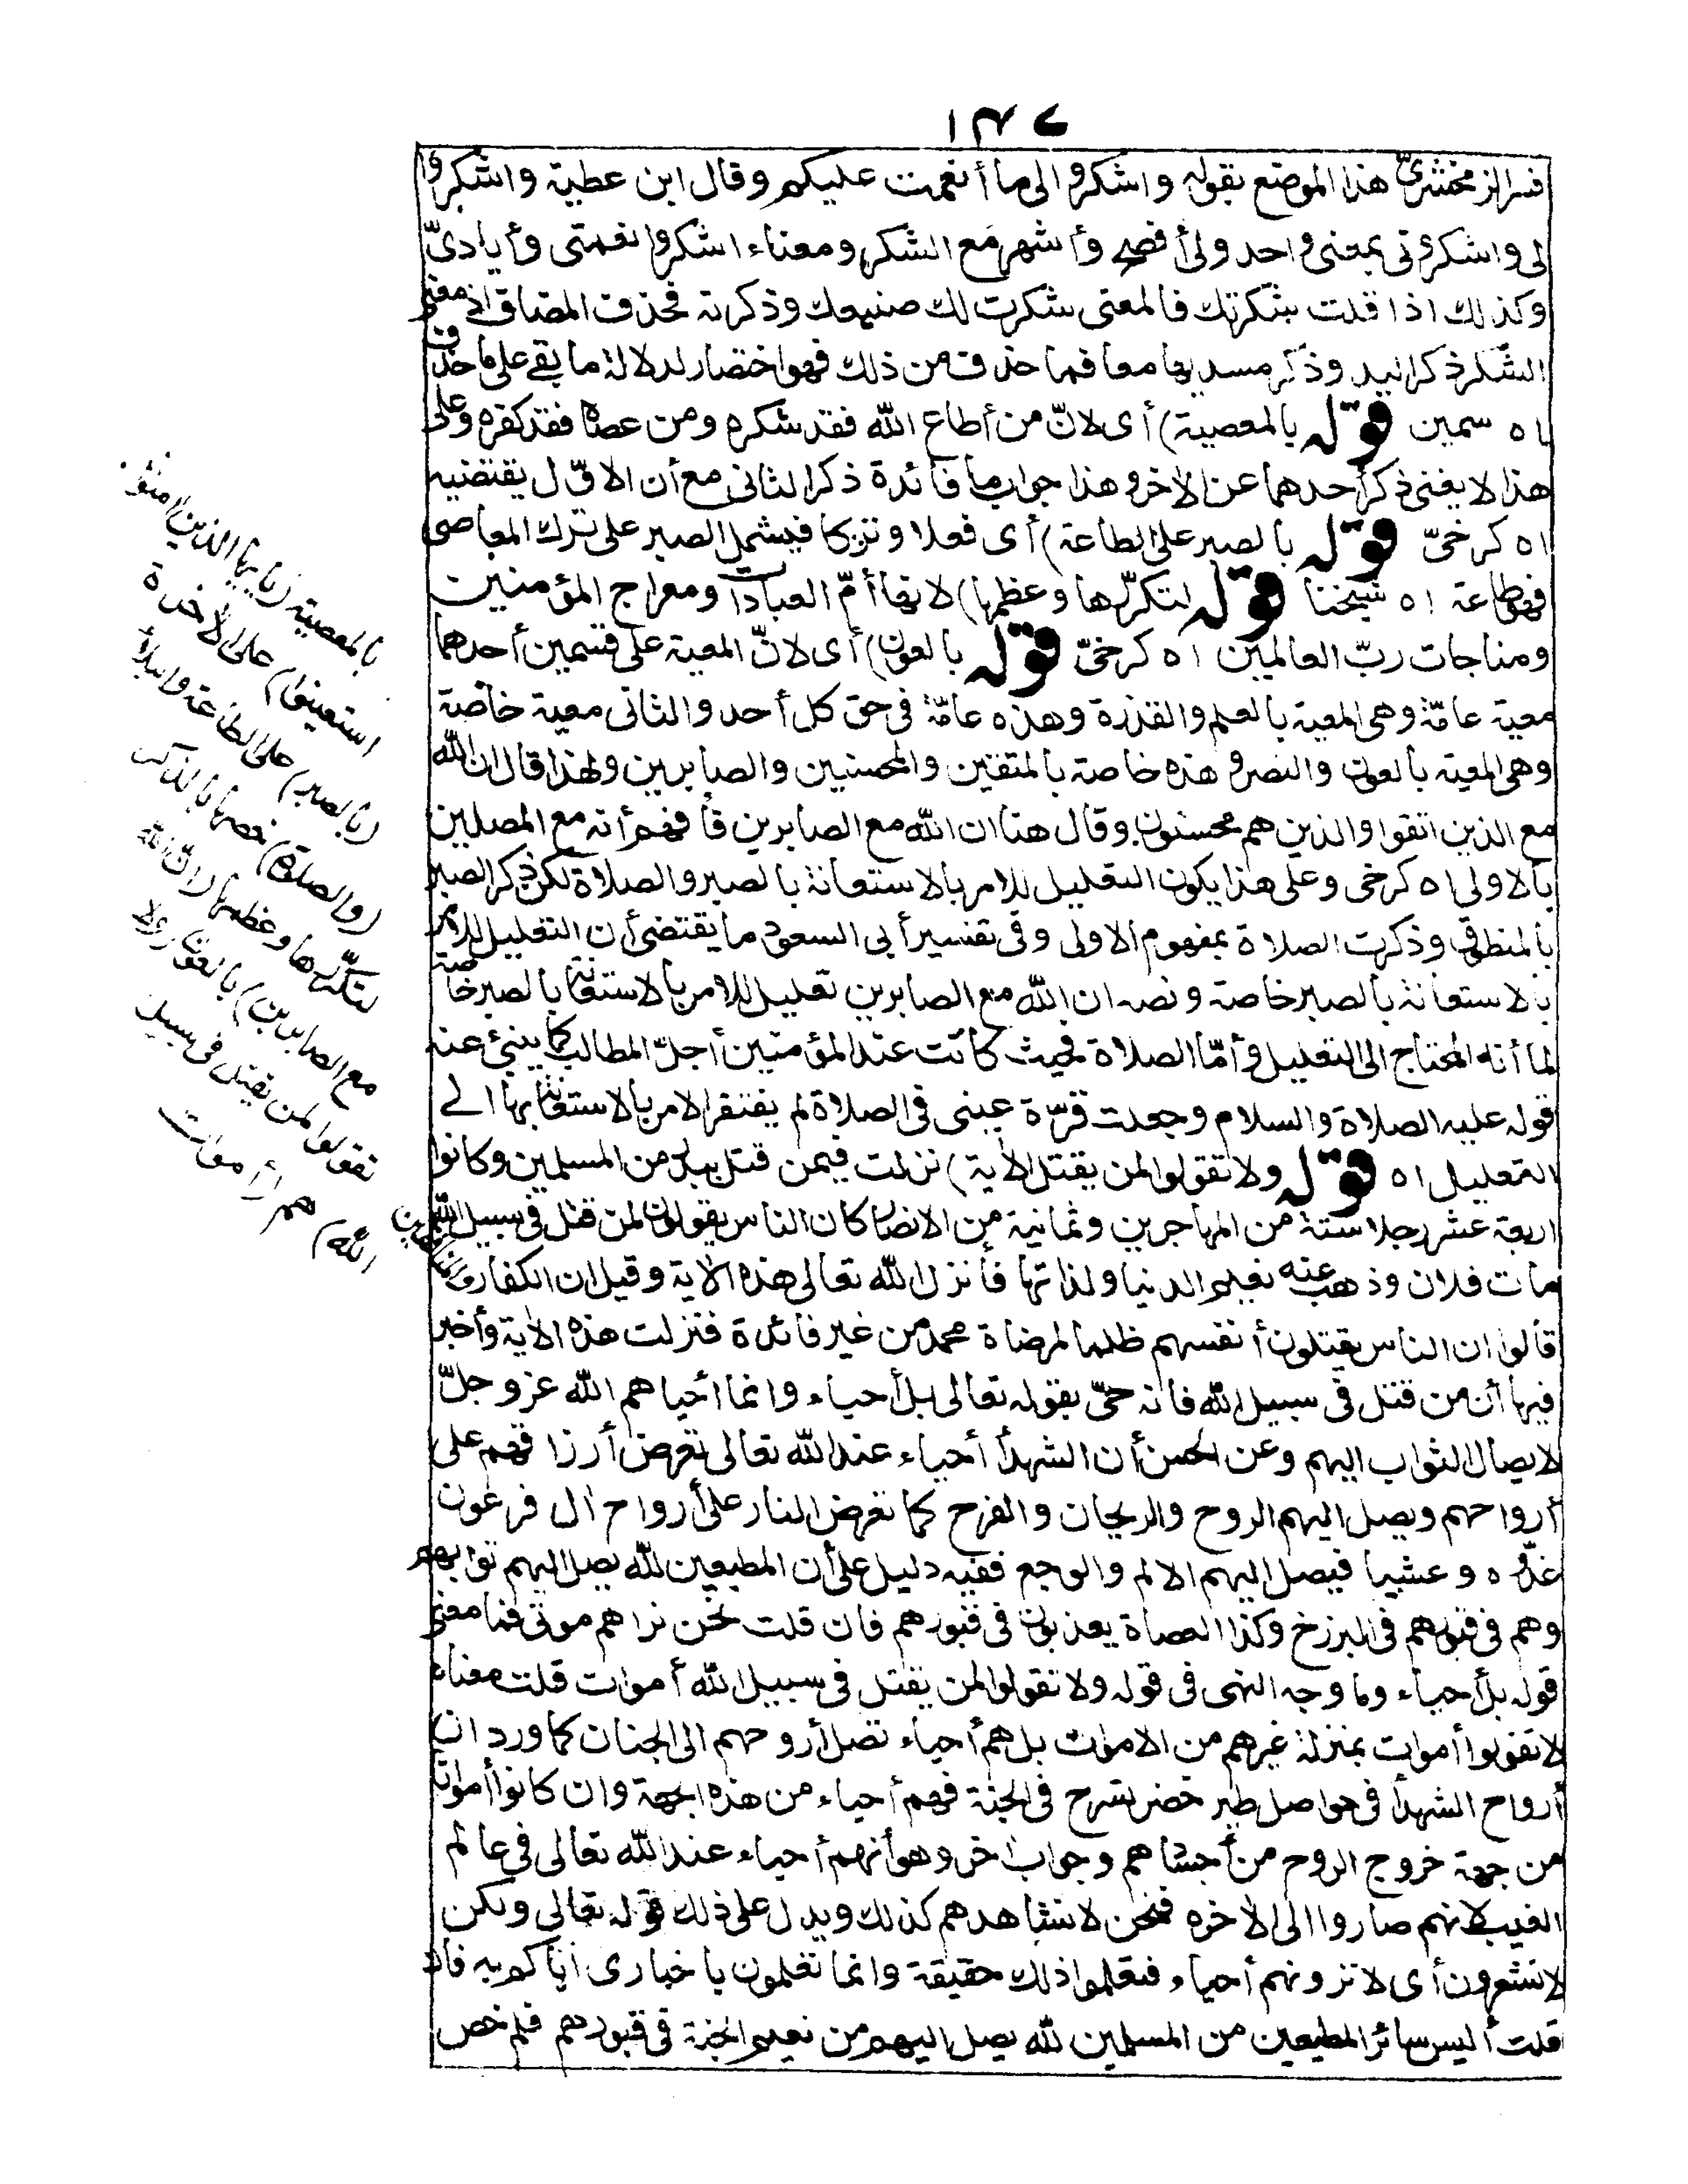 ١٣٧
فسر الزمخشريّ هذا الموضع بقوله واشكروا لى ما أنعمت عليكم وقال ابن عطية واشكروا
لى واشكرونى بمعنى واحد ولى أفصح وأشهر مع الشكر ومعناه اشكروا نعمتى وأيادىّ
وكذلك اذا قلت شكرتك فالمعنى شكرت لك صنيعك وذكرته فحذف المضاف اذ معنى
الشكر ذكر اليد وذكر مسديها معا فما حذف من ذلك فهو اختصار لدلالة ما بقى على ما حذف
اه سمين قوله بالمعصية) أى لانّ من أطاع الله فقد شكره ومن عصاه فقد كفره وعلى
هذا لا يغنى ذكر أحدهما عن الاخر وهذا جواب ما فائدة ذكر الثانى مع أن الاوّل يقتضيه
اه كرخىّ قوله بالصبر على الطاعة) أى فعلا وتركا فيشمل الصبر على ترك المعاصى
فهو طاعة اه شيخنا قوله لتكرّرها وعظمها) لانها أمّ العبادات ومعراج المؤمنين
ومناجات ربّ العالمين اه كرخىّ قوله بالعون) أى لانّ المعية على قسمين أحدهما
معية عامّة وهى المعية بالعلم والقدرة وهذه عامّة فى حق كل أحد والثانى معية خاصّة
وهى المعية بالعون والنصر وهذه خاصة بالمتقين والمحسنين والصابرين ولهذا قال ان الله
مع الذين اتقوا والذين هم محسنون وقال هنا ان الله مع الصابرين فأفهم أنه مع المصلين
بالاولى اه كرخى وعلى هذا يكون التعليل للامر بالاستعانة بالصبر والصلاة لكن ذكر الصبر
بالمنطوق وذكرت الصلاة بمفهوم الاولى وفى تفسير أبى السعود ما يقتضى أن التعليل للامر
بالاستعانة بالصبر خاصة ونصه ان الله مع الصابرين تعليل للامر بالاستعانة بالصبر خاصة
لما أنه المحتاج الى التعليل وأمّا الصلاة فحيث كانت عند المؤمنين أجلّ المطالب كما ينبئ عنه
قوله عليه الصلاة والسلام وجعلت قرّة عينى فى الصلاة لم يفتقر الامر بالاستعانة بها الى
التعليل اه قوله ولا تقولوا لمن يقتل الأية) نزلت فيمن قتل ببدر من المسلمين وكانوا
اربعة عشر رجلا ستة من المهاجرين وثمانية من الانصار كان الناس يقولون لمن قتل فى سبيل الله
مات فلان وذهب عنه نعيم الدنيا ولذاتها فأنزل الله تعالى هذه الأية وقيل ان الكفار والمنافقين
قالوا ان الناس يقتلون أنفسهم ظلما لمرضاة محمد من غير فائدة فنزلت هذه الأية وأخبر
فيها أن من قتل فى سبيل الله فانه حىّ بقوله تعالى بل أحياء وانما أحياهم الله عز وجلّ
لايصال الثواب اليهم وعن الحسن أن الشهدأ أحياء عند الله تعالى تعرض أرزاقهم على
أرواحهم ويصل اليهم الروح والريحان والفرح كما تعرض النار على أرواح ال فرعون
غدوّه وعشيا فيصل اليهم الالم والوجع ففيه دليل على أن المطيعين لله يصل اليهم ثوابهم
وهم فى قبورهم فى البرزخ وكذا العصاة يعذبون فى قبورهم فان قلت نحن نراهم موتى فما معنى
قوله بل أحياء وما وجه النهى فى قوله ولا تقولوا لمن يقتل فى سبيل الله أموات قلت معناه
لا تقولوا أموات بمنزلة غيرهم من الاموات بل هم أحياء تصل أروحهم الى الجنان كما ورد ان
أرواح الشهدأ فى حواصل طير خضر تسرح فى الجنة فهم أحياء من هذه الجهة وان كانوا أمواتا
من جهة خروج الروح من أجسادهم وجواب اخر وهو أنهم أحياء عند الله تعالى فى عالم
الغيب لانهم صاروا الى الاخره فنحن لا نشاهدهم كذلك ويدل على ذلك قوله تعالى ولكن
لا تشعرون أى لا ترونهم أحياء فتعلموا ذلك حقيقة وانما تعلمون باخبارى اياكم به فان
قلت أليس سائر المطيعين من المسلمين لله يصل اليهم من نعيم الجنة فى قبورهم فلم خص
بالمعصية (يايها الذين امنوا
استعينوا) على الاخرة
(بالصبر) على الطاعة والبلاء
(والصلاة) خصها بالذكر
لتكرّرها وعظمها (ان الله
مع الصابرين) بالعون (ولا
تقولوا لمن يقتل فى سبيل
الله) هم (أموات